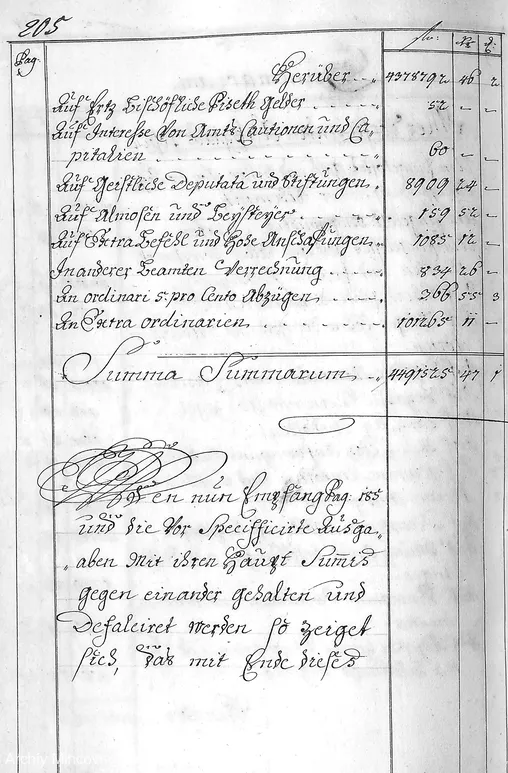 205
Pag: flr: Xr d:
Herüber 4378792 46 2
Auf Ertz Bischöfliche Piseth Gelder 52 – –
Auf Interesse Von Amts Cautionen und Ca,
pitalien 60 – –
Auf Geistliche Deputata und Stiftungen 8909 24 –
Auf Almosen und Beysteyer 159 52 –
Auf Extra Befehl und Hohe Anschaffungen 1085 12 –
In anderer Beamten Verrechnung 834 26 –
An ordinari 5. pro Cento Abzügen 366 55 3
An Extra ordinarien 101265 11 –
Summa Summarum 4491525 47 1
Wen nun Empfang Pag: 185
und die Vor Specifficirte Ausga,
aben mit ihren Haupt Sum̅is
gegen einander gehalten und
Defalciret werden so zeiget
sich, das mit Ende dieses